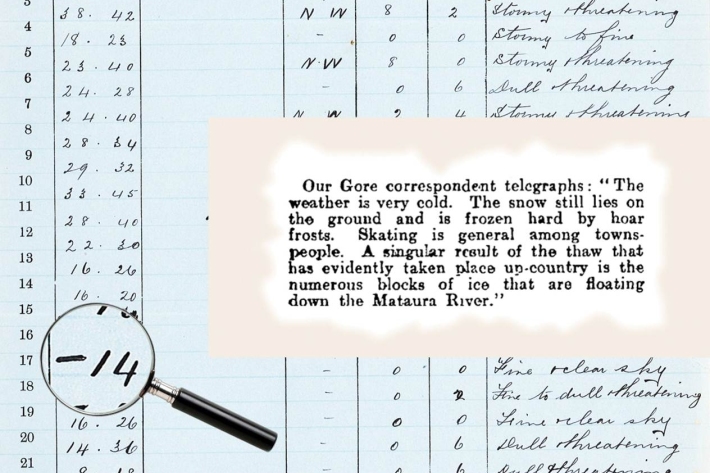 38. 42 N W 8 2 Stormy & threatening
4 18. 23 - 0 0 Stormy to fine
5 23. 40 N.W 8 0 Stormy threatening
6 24. 28 - 0 6 Dull & threatening
7 24. 40 N W 2 4 Stormy & threatening
8 28. 34
9 29. 32
10 33. 45
11 28. 40
12 22. 30
13 16. 26
14 16. 20
15
16
17 -14 - 0 0 Fine & clear sky
18 - 0 2 Fine to dull & threatening
19 16. 26 - 0 0 Fine & clear sky
20 14. 36 - 0 6 Dull & threatening
21
Our Gore correspondent telegraphs: "The
weather is very cold. The snow still lies on
the ground and is frozen hard by hoar
frosts. Skating is general among towns-
people. A singular result of the thaw that
has evidently taken place up-country is the
numerous blocks of ice that are floating
down the Mataura River."